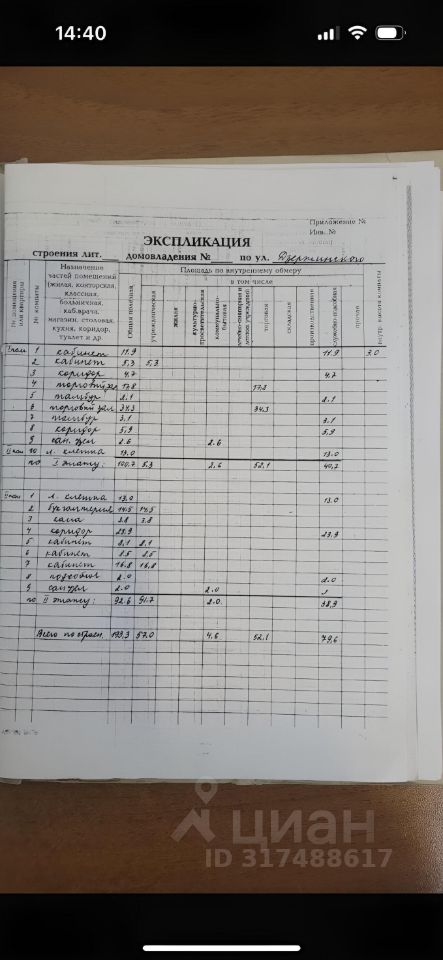 14:40
Приложение №
Инв. №
ЭКСПЛИКАЦИЯ
строения лит. домовладения № по ул. Дзержинского
№ помещения или квартиры
№ комнаты
Назначение частей помещений (жилая, конторская, классная, больничная, каб.врача, магазин, столовая, кухня, коридор, туалет и др.
Площадь по внутреннему обмеру
в том числе
Общая полезная
учрежденческая
жилая
культурно-просветительская
коммунально-бытовая
торговая
складская
производственная
прочая
1 кабинет 11.9 11.9 3.0
2 кабинет 5,3 5,3
3 коридор 4,7 4,7
4 торговый зал 17.8 17.8
5 тамбур 2,1 2,1
6 торговый зал 34.3 34.3
7 тамбур 3,1 3,1
8 коридор 5,9 5,9
9 сан. узел 2.6 2.6
10 л. клетка 13.0 13.0
по I этажу: 100.7 5.3 2,6 52,1 40,7
1 л. клетка 13.0 13.0
2 бухгалтерия 14.5 14,5
3 касса 3.8 3.8
4 коридор 23.9 23.9
5 кабинет 8,1 8,1
6 кабинет 8.5 8,5
7 кабинет 16.8 16,8
8 подсобное 2.0 2.0
9 сан.узел 2.0 2.0
по II этажу: 92.6 51.7 2.0 38,9
Всего по строен. 193,3 57.0 4,6 52.1 79,6
циан
ID 317488617